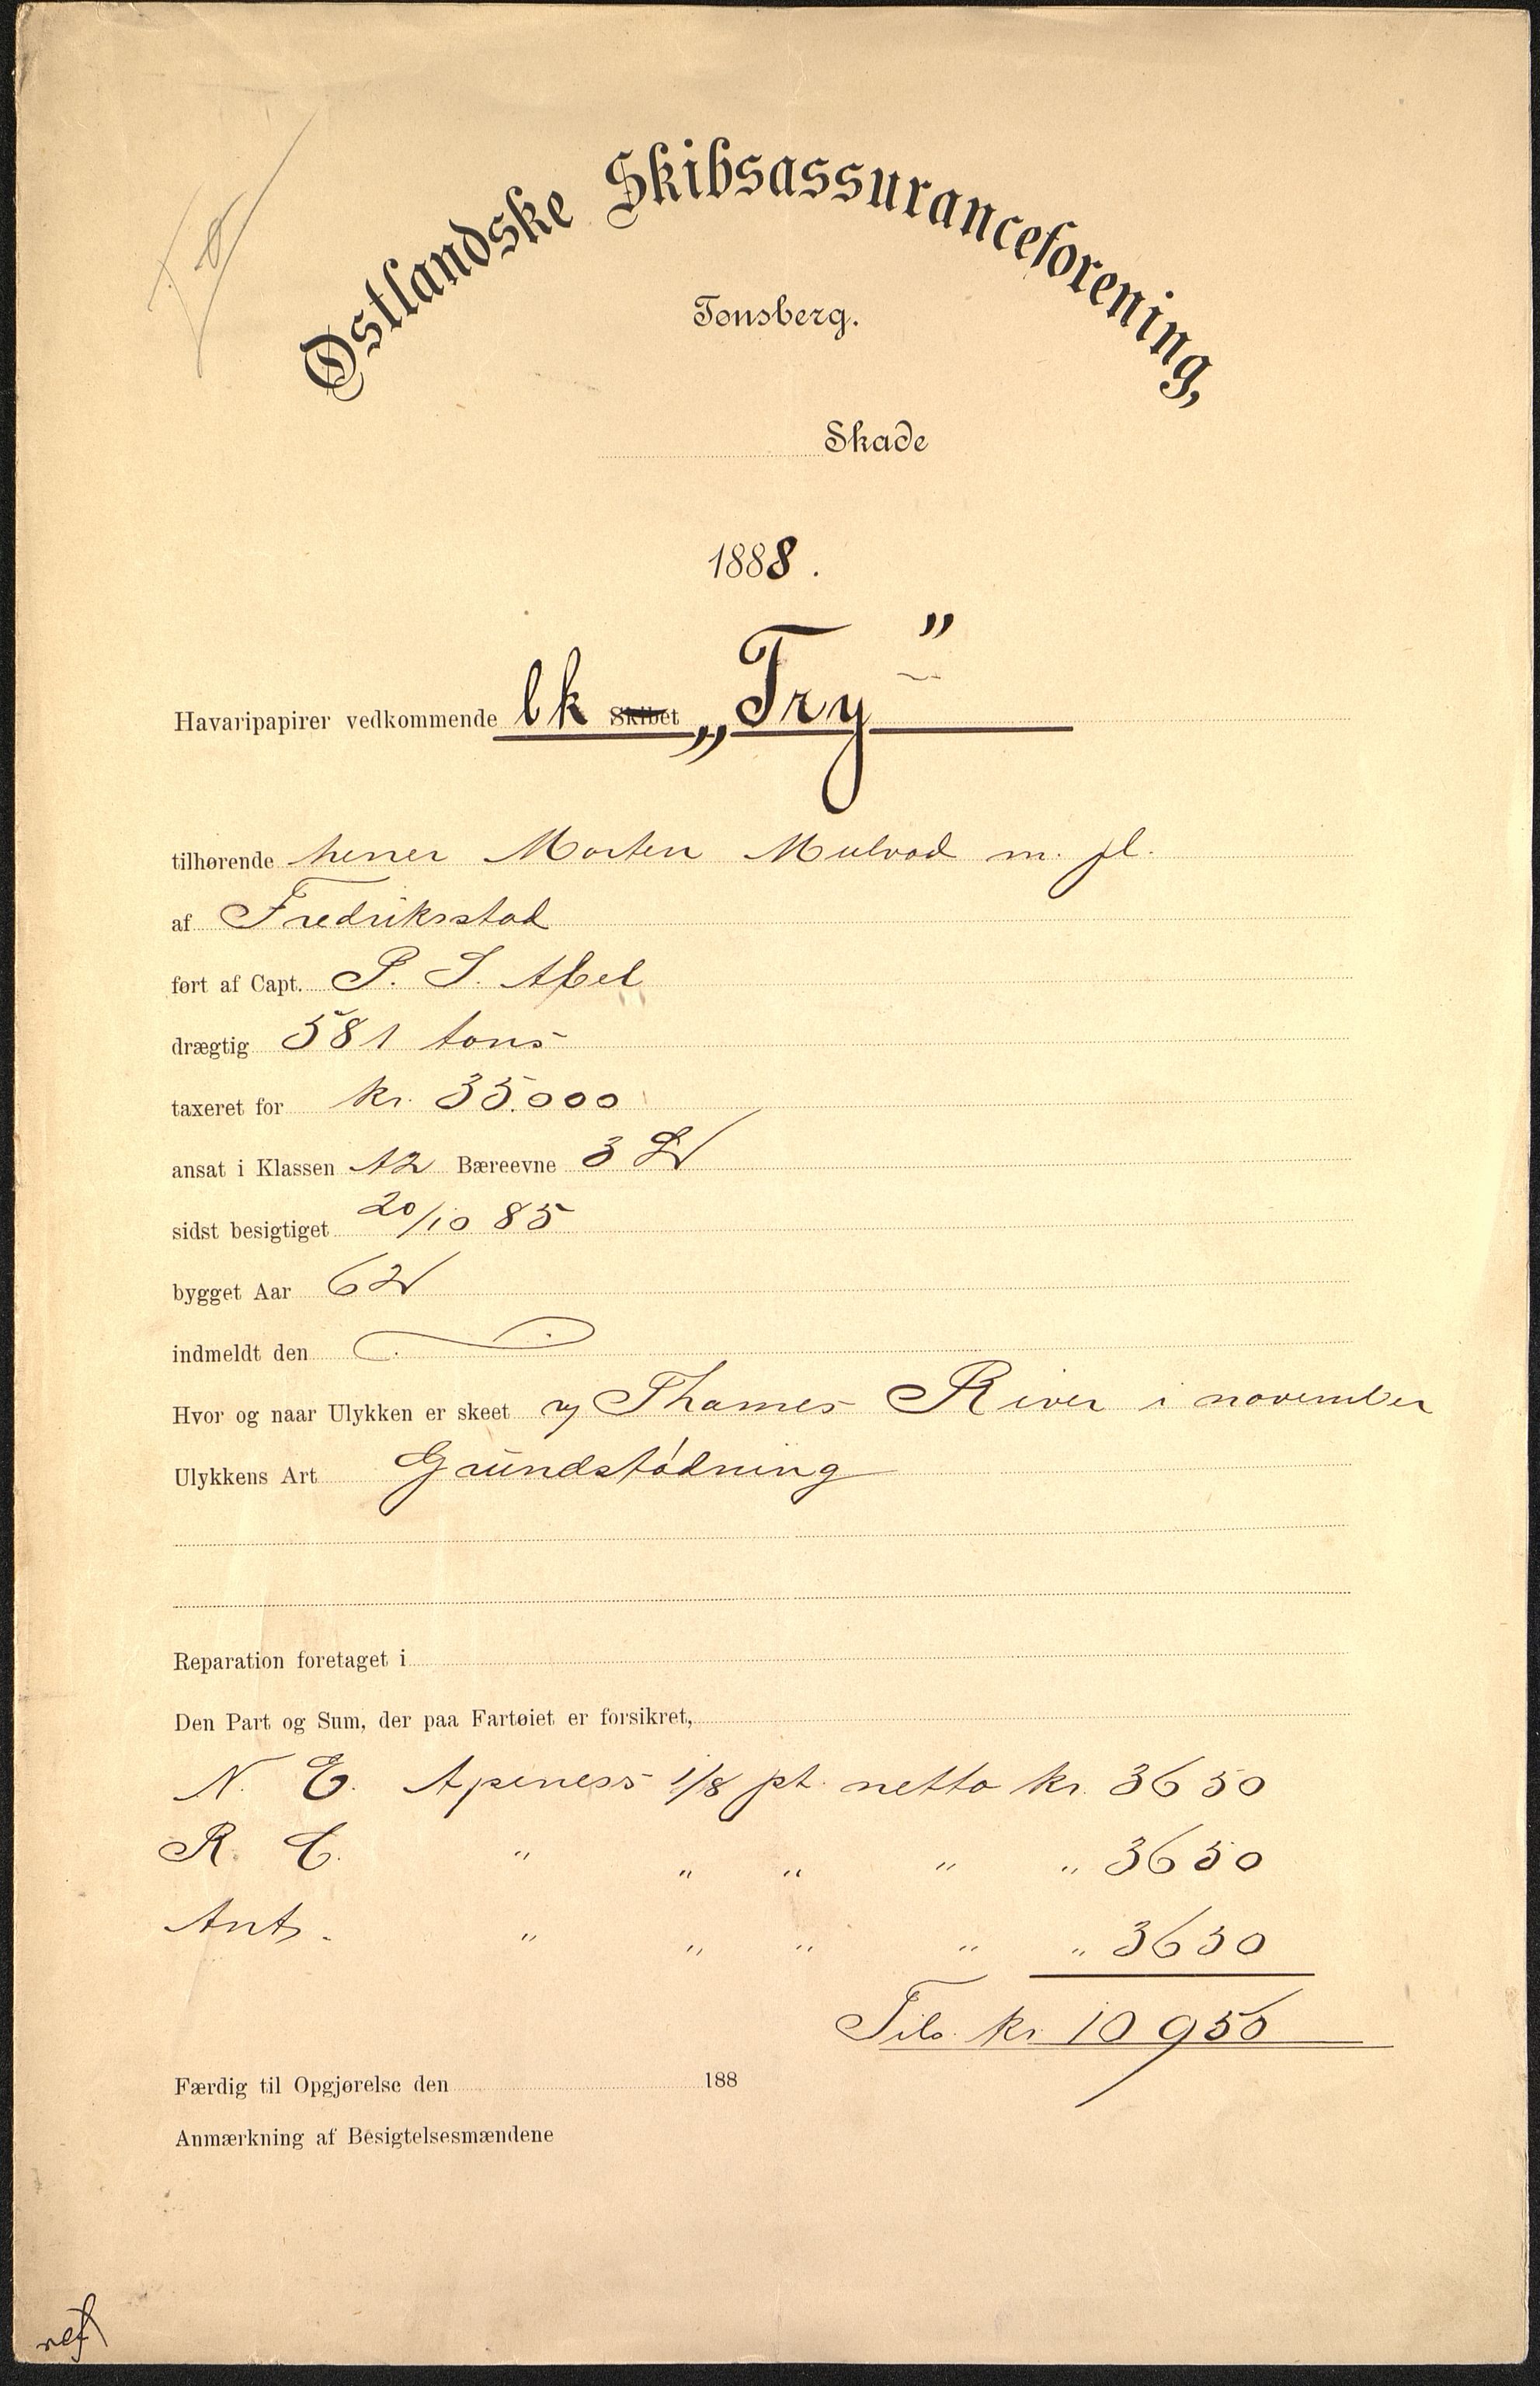 Østlandske Skibsassuranceforening,
Tønsberg.
Skade
1888.
Havaripapirer vedkommende bk Skibet „Try”
tilhørende herrer Morten Mulvad m. fl.
af Fredriksstad
ført af Capt. P. S. Abel
drægtig 581 tons
taxeret for kr. 35.000
ansat i Klassen A2 Bæreevne 3
sidst besigtiget 20/10 85
bygget Aar 62
indmeldt den
Hvor og naar Ulykken er skeet Thames River i november
Ulykkens Art Grundstødning
Reparation foretaget i
Den Part og Sum, der paa Fartøiet er forsikret,
N. E. Apeness 1/8 pt. netto kr. 3650
R. C. " " " " " 3650
Ant. " " " " " 3650
Tils. kr. 10950
Færdig til Opgjørelse den 188
Anmærkning af Besigtelsesmændene